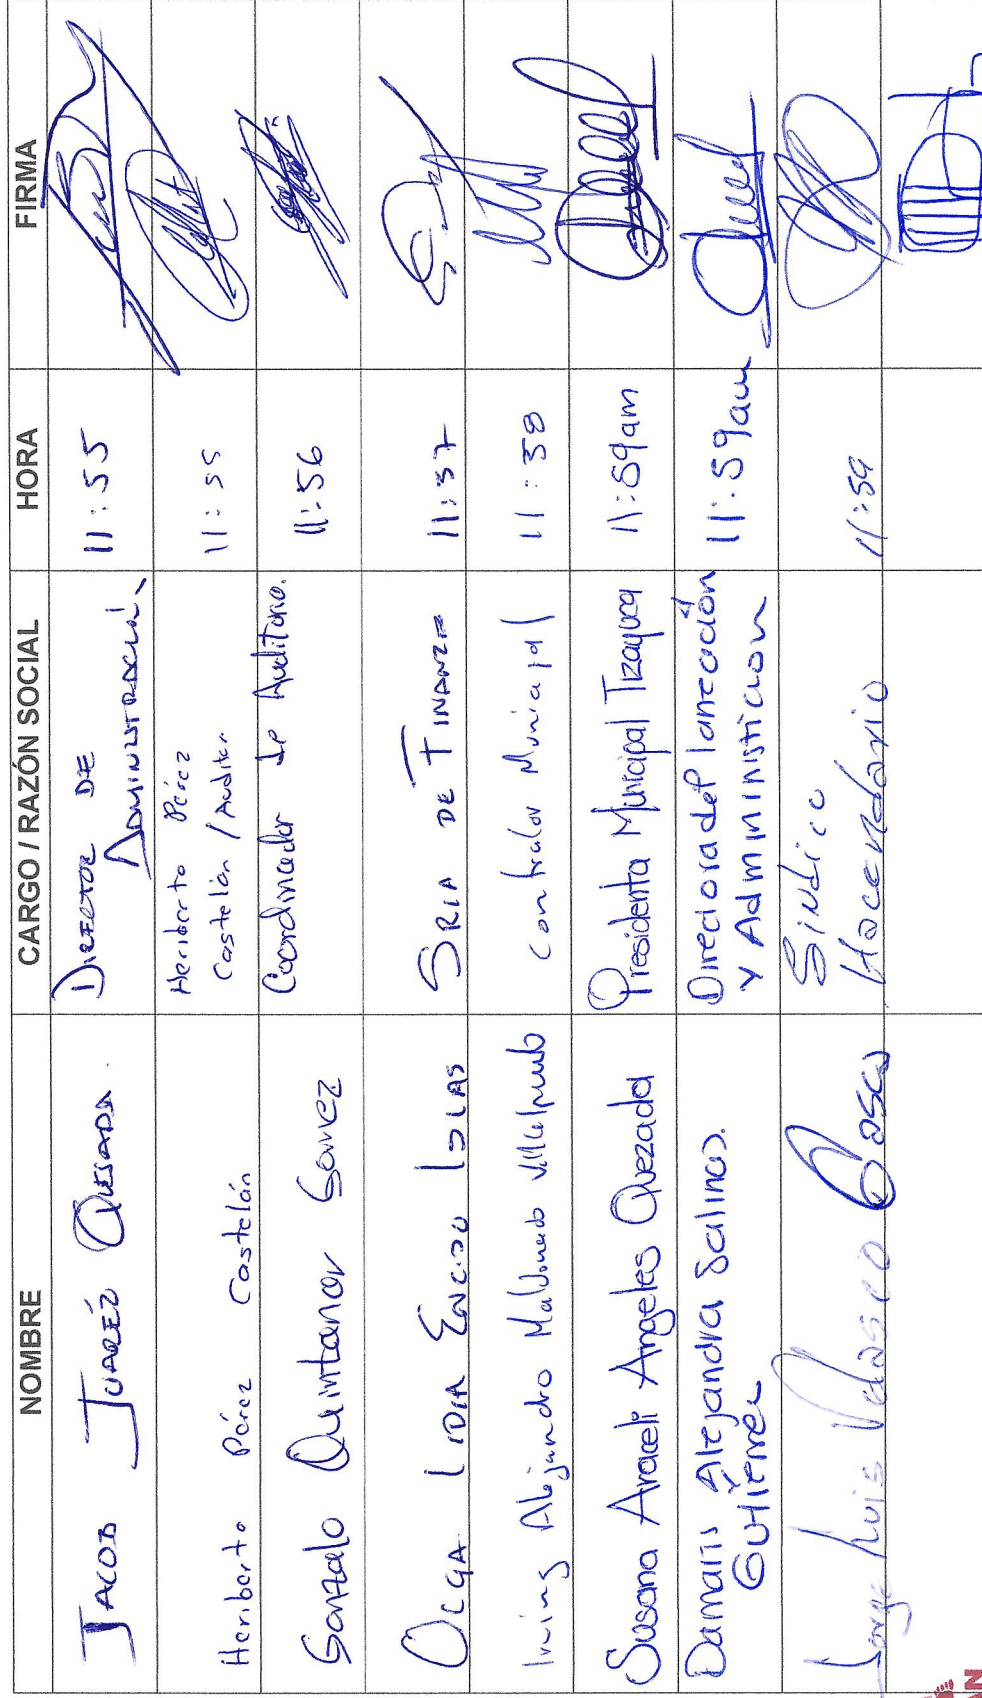 NOMBRE CARGO / RAZÓN SOCIAL HORA FIRMA
JACOB JUAREZ QUESADA. DIRECTOR DE 11:55
ADMINISTRACIÓN
Heriberto Pérez Castelán Heriberto Pérez 11:55
Castelán / Auditor
Gonzalo Quintanar Gomez Coordinador de Auditoria. 11:56
OLGA LIDIA ENCISO ISLAS SRIA DE FINANZAS 11:57
Irving Alejandro Maldonado Villalpando Contralor Municipal 11:58
Susana Araceli Angeles Quezada Presidenta Municipal Tizayuca 11:59am
Damaris Alejandra Salinas Directora de Planeación 11:59am
Gutierrez y Administracion
Jorge Luis Velasco Sindico 11:59
Hacendario